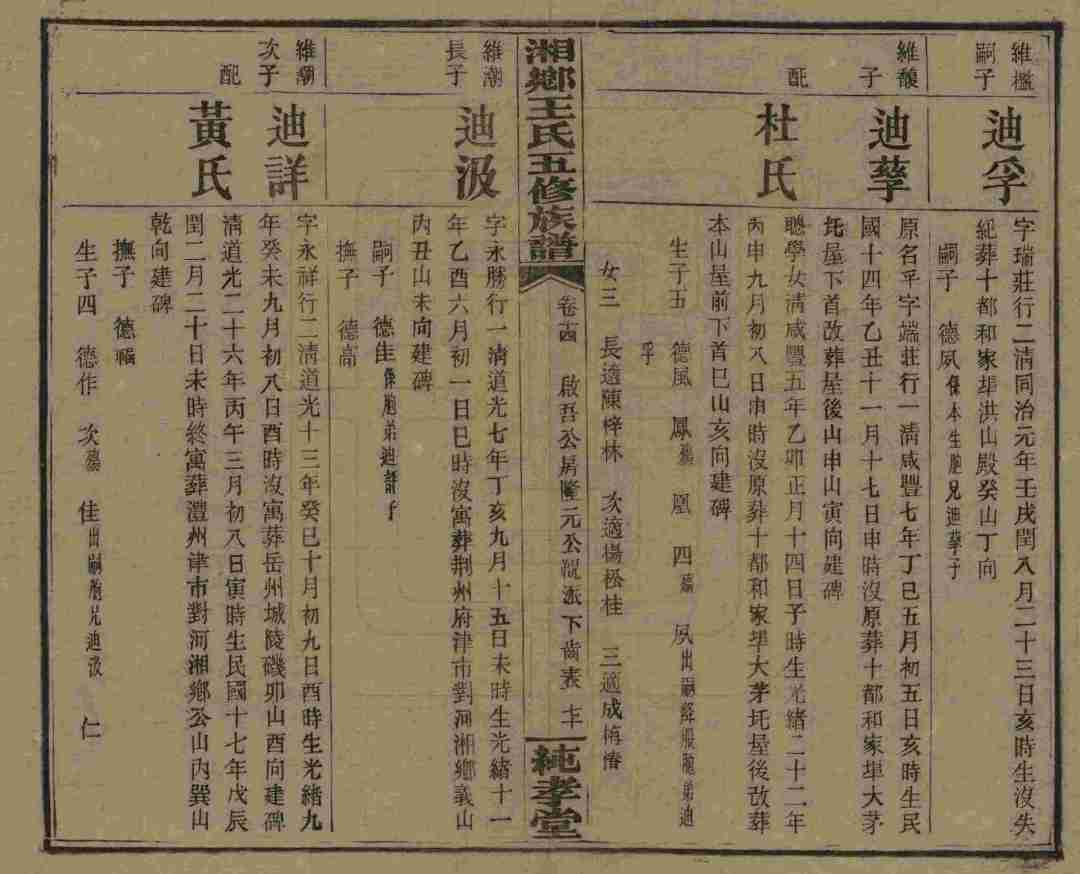 維櫳嗣子
迪孚
字瑞莊行二清同治元年壬戌閏八月二十三日亥時生沒失
紀葬十都和家埠洪山殿癸山丁向
嗣子 德夙係本生胞兄迪孳子
維釀子
迪孳
原名孚字端莊行一清咸豐七年丁巳五月初五日亥時生民
國十四年乙丑十一月十七日申時沒原葬十都和家埠大茅
坵屋下首改葬屋後山申山寅向建碑
配
杜氏
聰學女清咸豐五年乙卯正月十四日子時生光緒二十二年
丙申九月初八日申時沒原葬十都和家埠大茅坵屋後改葬
本山屋前下首巳山亥向建碑
生子五 德風 鳳殤 凰 四殤 夙出嗣降服胞弟迪
孚
女三 長適陳梓林 次適楊松桂 三適成梅椿
湘鄉王氏五修族譜
卷十四 啟吾公房隆元公派下齒表
純孝堂
維潮長子
迪汲
字永勝行一清道光七年丁亥九月十五日未時生光緒十一
年乙酉六月初一日巳時沒寓葬荆州府津市對河湘鄉義山
內丑山未向建碑
嗣子 德佳係胞弟迪詳子
撫子 德高
維潮次子
迪詳
字永祥行二清道光十三年癸巳十月初九日酉時生光緒九
年癸未九月初八日酉時沒寓葬岳州城陵磯卯山酉向建碑
配
黃氏
清道光二十六年丙午三月初八日寅時生民國十七年戊辰
閏二月二十日未時終寓葬澧州津市對河湘鄉公山內巽山
乾向建碑
撫子 德福
生子四 德作 次殤 佳出嗣胞兄迪汲 仁